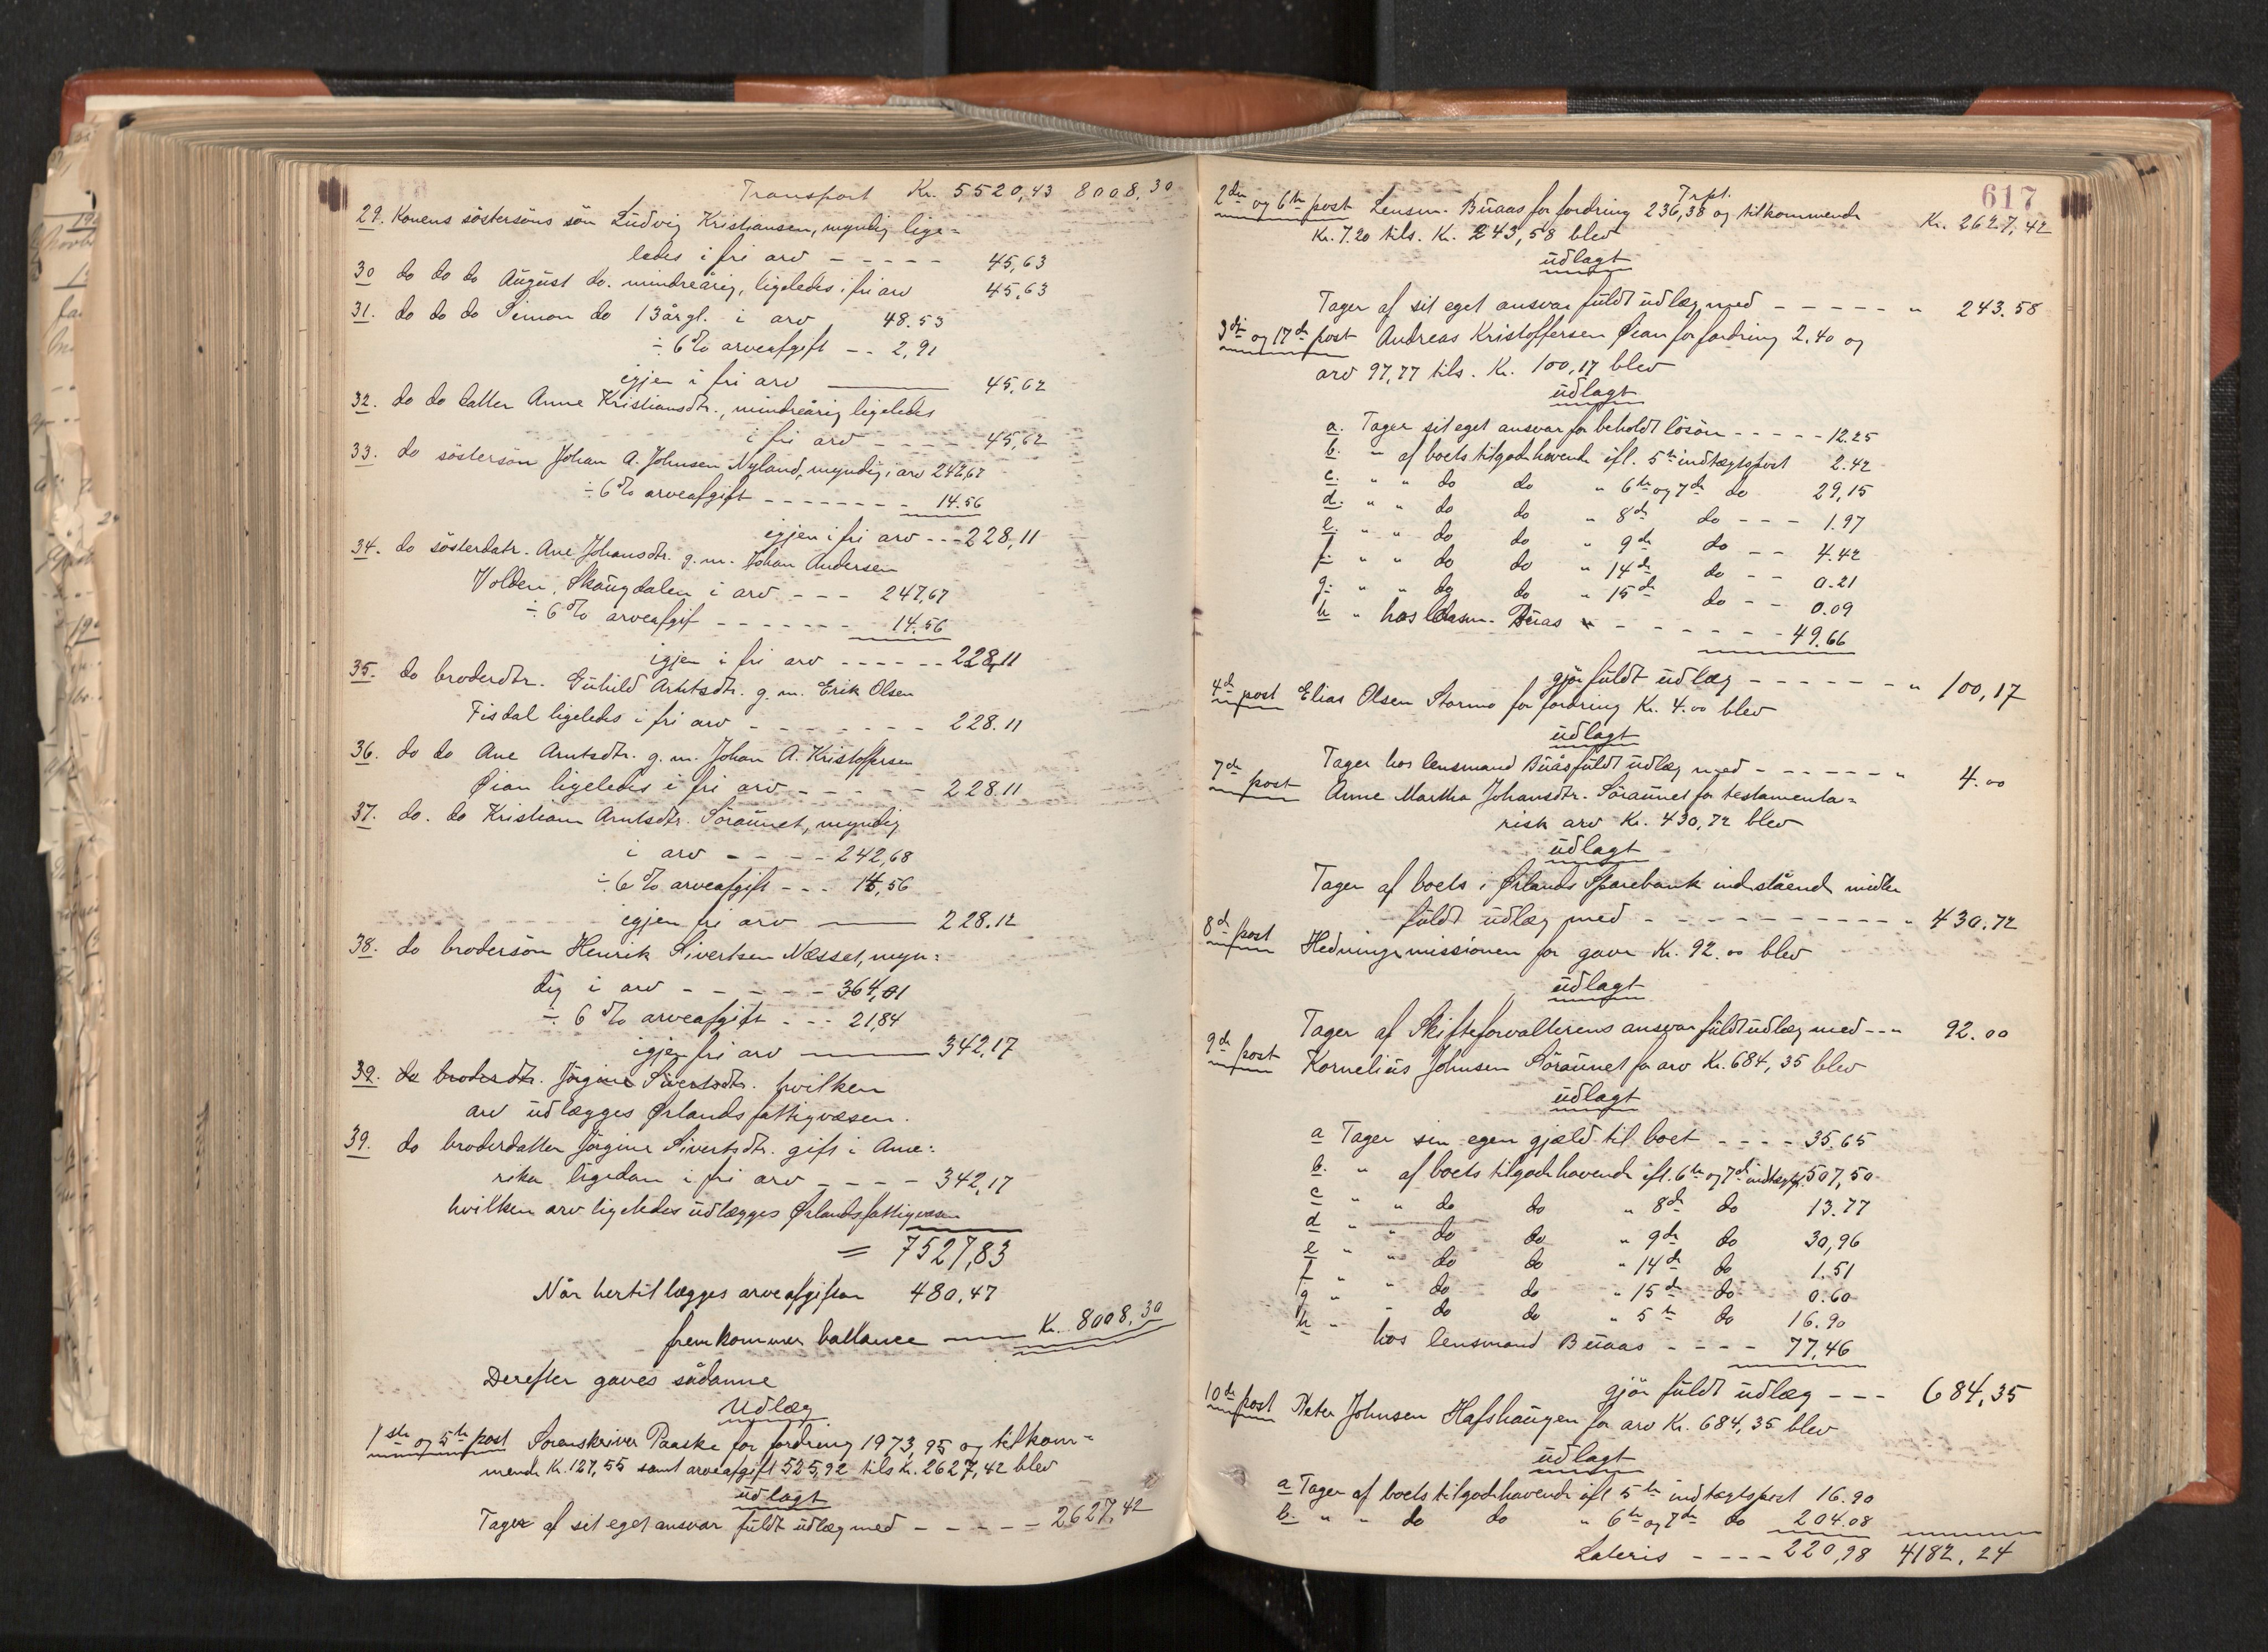 Transport Kr. 5520,43 8008,30
29. Konens søstersøns søn Ludvig Kristiansen, myndig lige=
ledes i fri arv - - - - - 45,63
30 do do do August do. mindreårig, ligeledes i fri arv 45,63
31. do do do Simon do 13 årgl. i arv 48.53
÷ 6% arveafgift - - 2,91
igjen i fri arv 45,62
32. do do datter Anne Kristiansdtr., mindreårig ligeledes
i fri arv - - - - 45,62
33. do søstersøn Johan A. Johnsen Nyland, myndig, i arv 242,67
÷ 6% arveafgift - - - - - - - 14.56
igjen i fri arv - - - 228,11
34. do søsterdatr. Ane Johansdtr. g. m. Johan Andersen
Volden, Skaugdalen i arv - - - 242,67
÷ 6% arveafgif - - - - - - - 14.56
igjen i fri arv - - - - - - 228,11
35. do broderdtr. Guhild Arntsdtr. g. m. Erik Olsen
Fisdal ligeledes i fri arv - - - - - - - 228.11
36. do do Ane Arntsdtr. g. m. Johan A. Kristoffersen
Øian ligeledes i fri arv - - - - - 228.11
37. do. do Kristiam Arntsdtr. Søraunet, myndig
i arv - - - - 242,68
÷ 6% arveafgift - - - 14,56
igjen fri arv 228.12
38. do brodersøn Henrik Sivertsen Næsset, myn=
dig i arv - - - - - 364,01
÷ 6% arveafgift - - - 21,84
igjen fri arv 342,17
39. do broderdtr. Jørgine Sivertsdtr. hvilken
arv udlægges Ørlands fattigvæsen.
39. do broderdatter Jørgine Sivertsdtr. gift i Ame=
rika ligedan i fri arv - - - - 342,17
hvilken arv ligeledes udlægges Ørlands fattigvæsen
= 7527,83
Når hertil lægges arveafgiften 480,47
fremkommer ballance Kr. 8008,30
Derefter gaves sådanne
Udlæg
1ste og 5te post Sorenskriver Paaske for fordring 1973,95 og tilkom=
mende Kr. 127,55 samt arveafgift 525,92 tils Kr. 2627,42 blev
udlagt
Tager af sit eget ansvar fuldt udlæg med - - - - - 2627,42
617
Trpt. Kr. 2627,42
2den og 6te post Lensm. Buaas for fordring 236,38 og tilkommende
Kr. 7.20 tils. Kr. 243,58 blev
udlagt
Tager af sit eget ansvar fuldt udlæg med - - - - - " 243.58
3die og 17de post Andreas Kristoffersen Øian for fordring 2.40 og
arv 97,77 tils. Kr. 100,17 blev
udlagt
a. Tager sit eget ansvar for beholdt løsøre - - - - - 12.25
b. " af boets tilgodehavende ifl. 5te indtægtspost 2.42
c. " " do do " 6te og 7de do 29,15
d. " " do do " 8de do - - - 1.97
e. " " do do " 9de do - - 4.42
f. " " do do " 14de do - - 0.21
g. " " do do " 15de do - - 0.09
h " hos lensm. Buas - - - - - - - 49.66
gjør fuldt udlæg - - - - - - - " 100,17
4de post Elias Olsen Stormo for fordring Kr. 4.00 blev
udlagt
Tager hos lensmand Buås fuldt udlæg med - - - - - - " 4.00
7de post Anne Martha Johansdtr. Søraunet for testamenta=
risk arv Kr. 430,72 blev
udlagt
Tager af boets i Ørlands Sparebank indestående midler
fuldt udlæg med - - - - - - - - - - " 430.72
8de post Hedningemissionen for gave Kr. 92.00 blev
udlagt
Tager af Skifteforvalterens ansvar fuldt udlæg med - - " 92.00
9de post Kornelius Johnsen Søraunet for arv Kr. 684,35 blev
udlagt
a Tager sin egen gjæld til boet - - - - 35.65
b. " af boets tilgodehavende ifl. 6te og 7de indtægtsp. 507,50
c " " do do " 8de do 13.77
d " " do do " 9de do 30,96
e " " do do " 14de do 1.51
f " " do do " 15de do 0.60
g " " do do " 5te do 16.90
h " hos lensmand Buaas - - - - 77,46
gjør fuldt udlæg - - - 684,35
10de post Peter Johnsen Hafshaugen for arv Kr. 684,35 blev
udlagt
a Tager af boets tilgodehavende ifl 5te indtægtspost 16.90
b. " " do do " 6te og 7de do 204.08
Lateris - - - - 220,98 4182,24